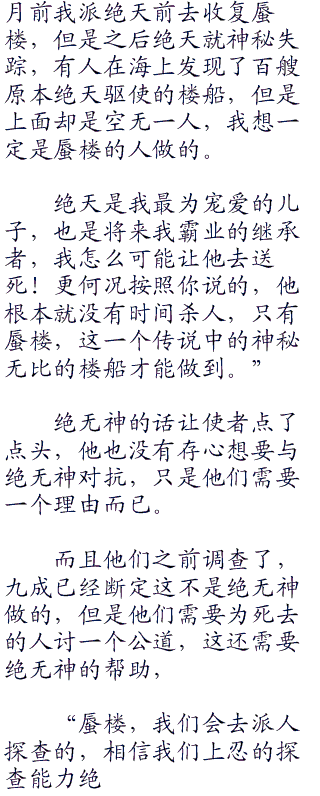 月前我派绝天前去收复蜃
楼，但是之后绝天就神秘失
踪，有人在海上发现了百艘
原本绝天驱使的楼船，但是
上面却是空无一人，我想一
定是蜃楼的人做的。
绝天是我最为宠爱的儿
子，也是将来我霸业的继承
者，我怎么可能让他去送
死！更何况按照你说的，他
根本就没有时间杀人，只有
蜃楼，这一个传说中的神秘
无比的楼船才能做到。”
绝无神的话让使者点了
点头，他也没有存心想要与
绝无神对抗，只是他们需要
一个理由而已。
而且他们之前调查了，
九成已经断定这不是绝无神
做的，但是他们需要为死去
的人讨一个公道，这还需要
绝无神的帮助，
“蜃楼，我们会去派人
探查的，相信我们上忍的探
查能力绝